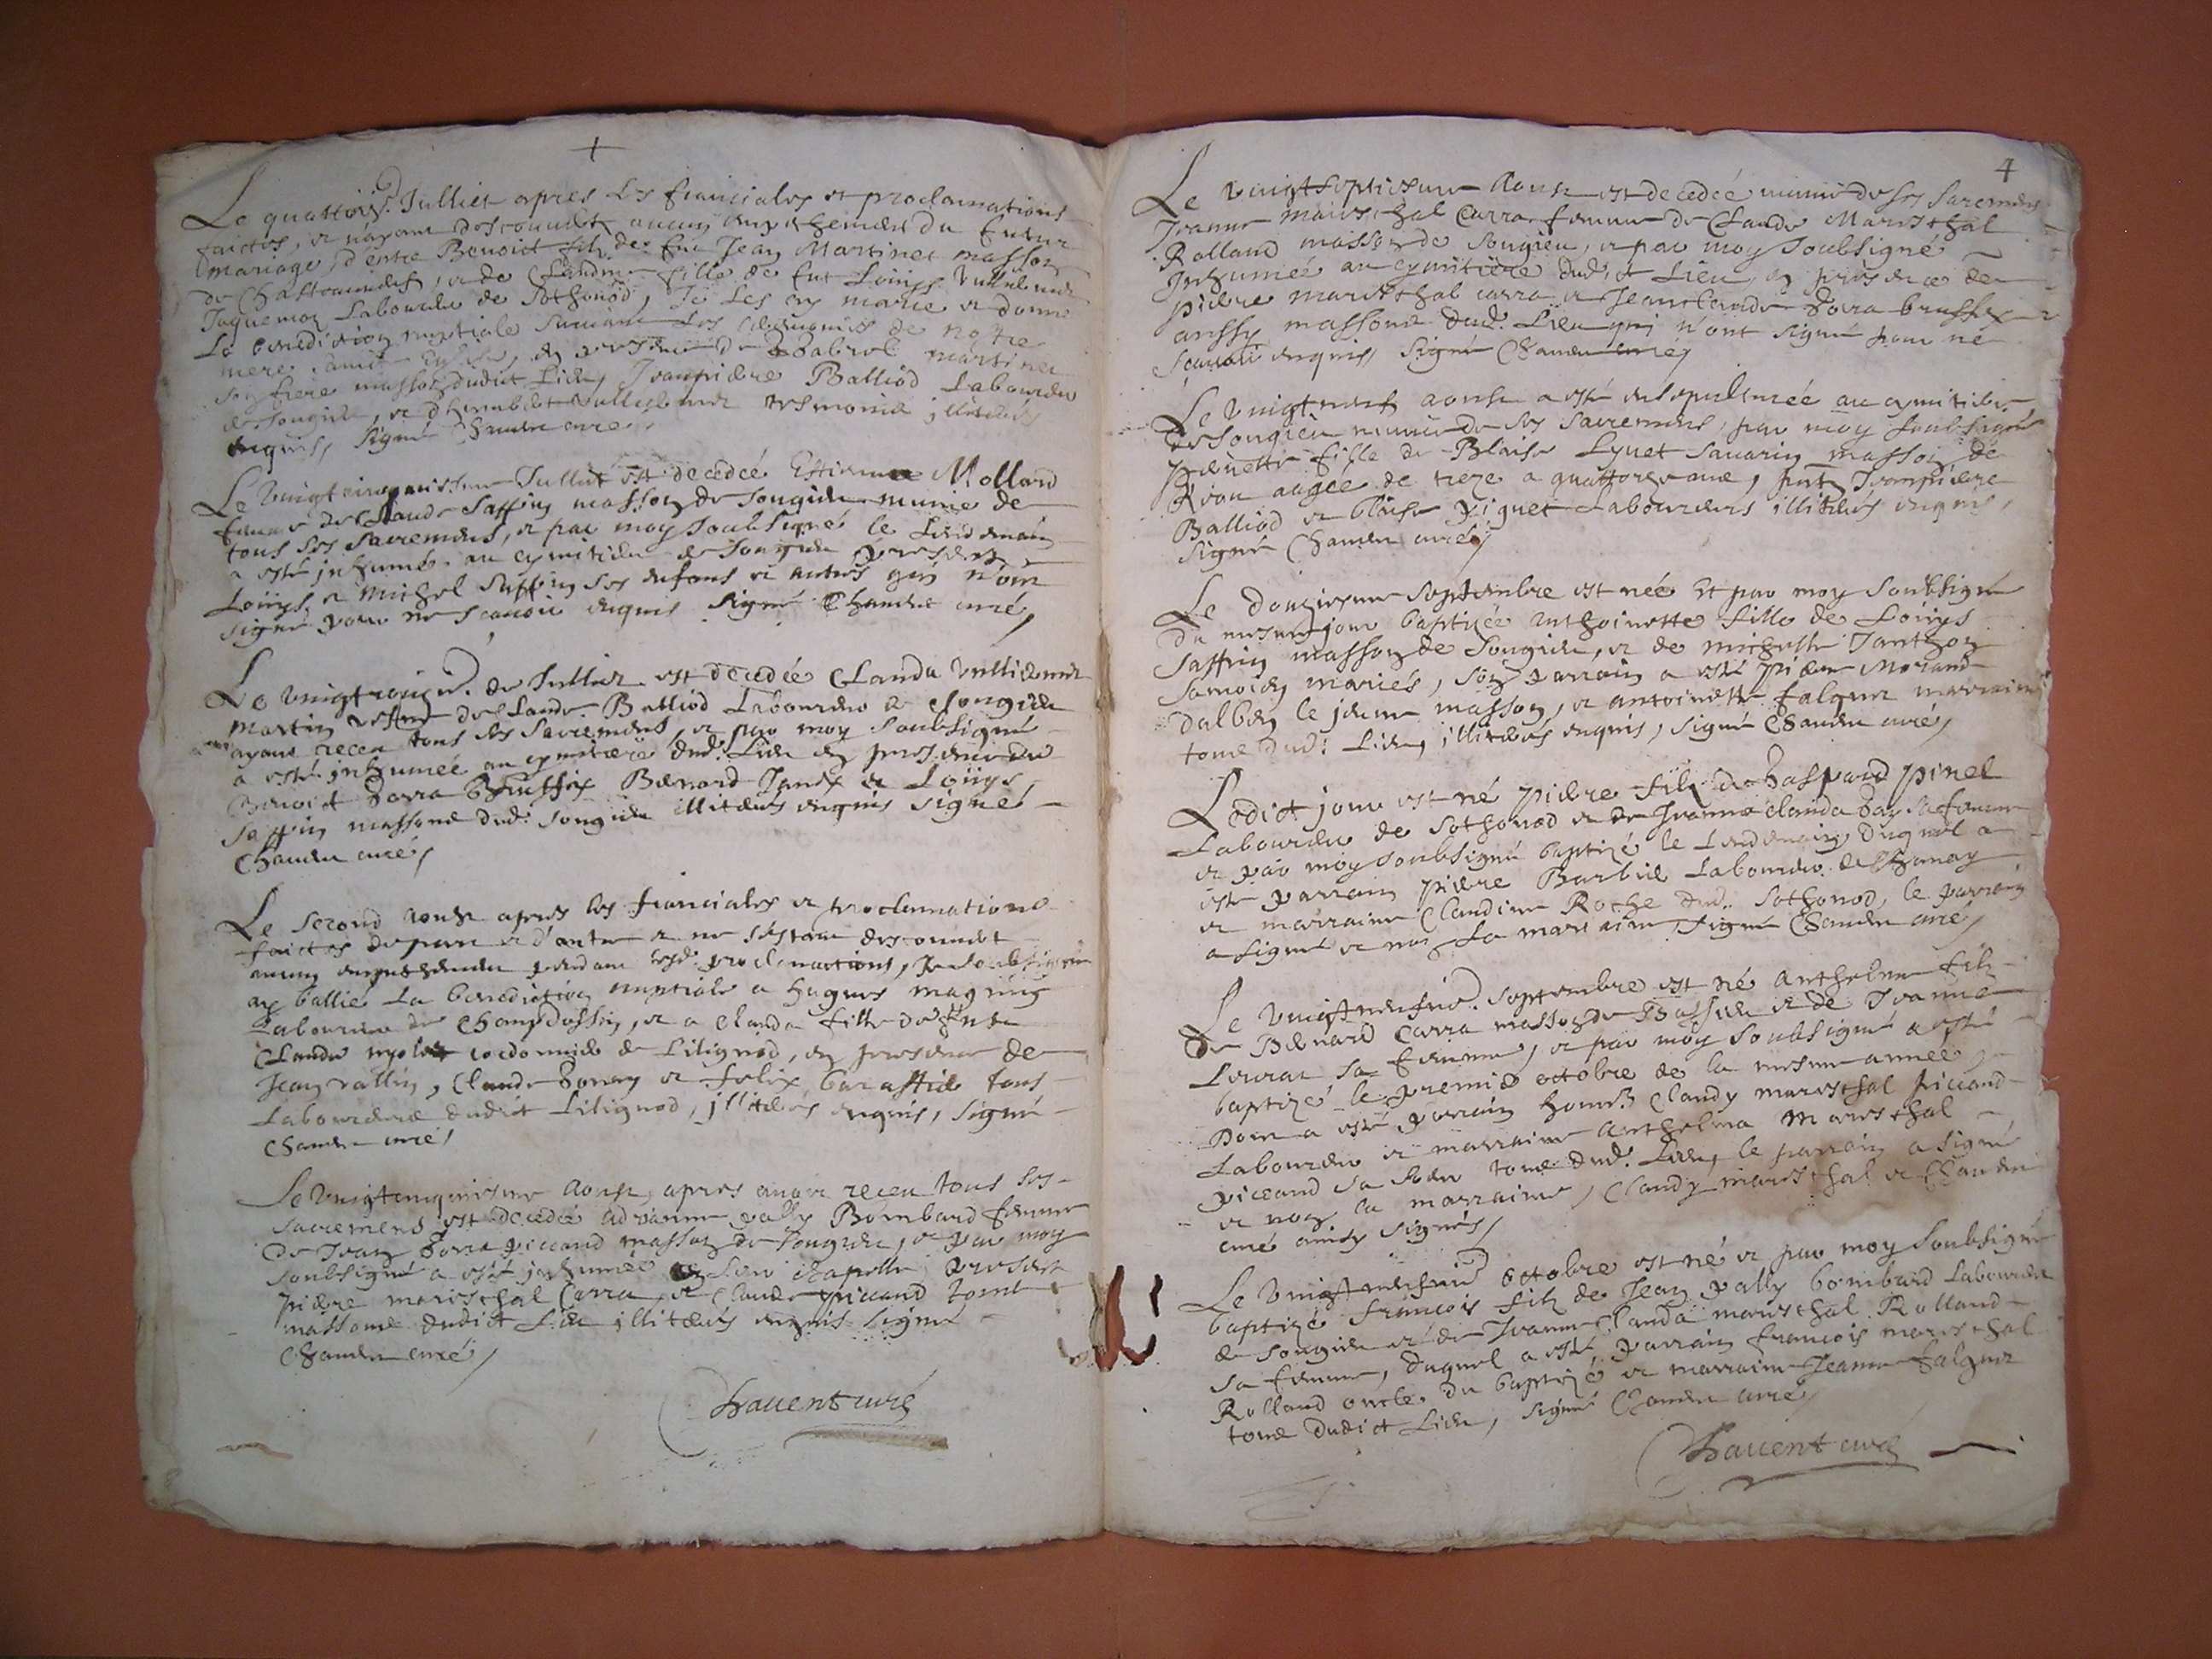 +
Le quattorz.e Julliet apres les fianciales et proclamations
faictes, et n'ayant descouvert aucun empechement du futur
mariage, d'entre Benoict filz de feu Jean Martinet masson
de Chastraundes, et de Claudine fille de fut Louys Vulliemin
Jaquemon Laboureur de Sothonod, Je les ay marié et donné
La benediction nuptiale suivant les ceremonies de notre
mere saincte Eglise, en presence de Gabriel martinet
son frere masson dudict Lieu, Jeanpierre Balliod Laboureur
de Songieu, et d'humbert Vulliemin tesmoins illiterés
enquis, signé Chavent curé,
Le vingt cinquiesme Julliet est decedeé Estienne Mollard
femme de Claude Saffin masson de Songieu munie de
tous ses sacremens, et par moy soubsigné le Lendemain
a esté inhumée au cymitiere de Songieu presents
Loüys, et Michel Saffin ses enfans et autres qui n'ont
signé pour ne scavoir enquis signé Chavent curé,
Le vingtroisie. de Julliet est decedée Clauda Vulliemin
Martin vesfve de Claude Balliod Laboureur de Songieu
ayant receu tous ses sacremens, et par moy soubsigné
a esté inhumée au cymitiere dud. Lieu en presence de
Benoict Borra Bruffix Bernard Jantz et Loüys
Saffin massons dud. Songieu illiterés enquis signé
Chavent curé,
Le second Aoust apres les fianciales et proclamations
faictes de part et d'autre et ne s'estant descouvert
aucun empechement pendant lesd. proclamations, Je soubsigné
ay ballié la benediction nuptiale a Hugues magnin
Laboureur de Champdossin, et a Clauda fille de feu
Claude mylet cordonnier de Lilignod, en presence de
Jean rallin, Claude bonay et felix barattie tous
Laboureurs dudict Lilignod, illiterés enquis, signé
Chavent curé,
Le vingtcinquiesme Aoust, apres avoir receu tous ses
sacremens est decedeé Adrianne pally Bombard femme
De Jean borra piccand masson de Songieu, et par moy
soubsigné a esté inhumée en leur chapelle present
Pierre mareschal Carra, et Claude piccand tous
massons dudict Lieu illiterés enquis signé
Chavent curé,
Chavent curé
4
Le vingtseptiesme Aoust est decedeé munie de ses sacremens
Jeanne mareschal Carra femme de Claude Mareschal
Rolland masson de Songieu, et par moy soubsigné
Inhumée au cymitiere dud.ct Lieu, en presence de
pierre mareschal carra et Jeanclaude borra bruffix
aussy massons dud. Lieu qui n'ont signé pour ne
scavoir enquis, signé Chavent curé,
Le vingtneuf aoust a esté ensepulturée au cymitiere
de Songieu munie de ses sacremens, par moy soubsigné
pernette fille de Blaise Lynet Savarin masson de
Rion aagée de treze a quattorze ans, putz Jeanpierre
Balliod et blaise piquet Laboureurs illiterés enquis,
signé Chavent curé,
Le douziesme septembre est née Et par moy soubsigné
du mesme jour baptizée anthoinette fille de Loüys
Saffin masson de Songieu, et de michelle Janthon
Samoien mariés, son parrain a esté pierre Morand
Dalben le jeune masson, et antoinette falquet marraine
tous dud. Lieu, illiterés enquis, signé Chavent curé,
Ledict jour est né pierre filz de Gaspard pinel
Laboureur de Sothonod et de Jeanne clauda bay sa femme
et par moy soubsigné baptizé le Lendemain, duquel a
esté parrain pierre Barbier Laboureur de Chanay
et marraine Claudine Roche dud. Sothonod, le parrain
a signé et non la marraine, signé Chavent curé,
Le vingtneufvie. septembre est né anthelme filz
De Bernard Carra masson de Bassieu et de Jeanne
Leurat sa femme, et par moy soubsigné a esté
baptizé le premier octobre de la mesme année
Dont a esté parrain honor. Claudy mareschal piccand
Laboureur et marraine anthelma mareschal
piccand sa soeur tous dud. Lieu, le parrain a signé
et non la marraine, Claudy mareschal et Chavent
curé ainsy signés,
Le vingtneufvie. octobre est né et par moy soubsigné
baptizé francois filz de Jean pally bombard Laboureur
de Songieu et de Jeanne Clauda mareschal Rolland
sa femme, duquel a esté parrain francois mareschal
Rolland oncle du baptizé et marraine Jeanne falquet
tous dudict Lieu, signé Chavent curé,
Chavent curé